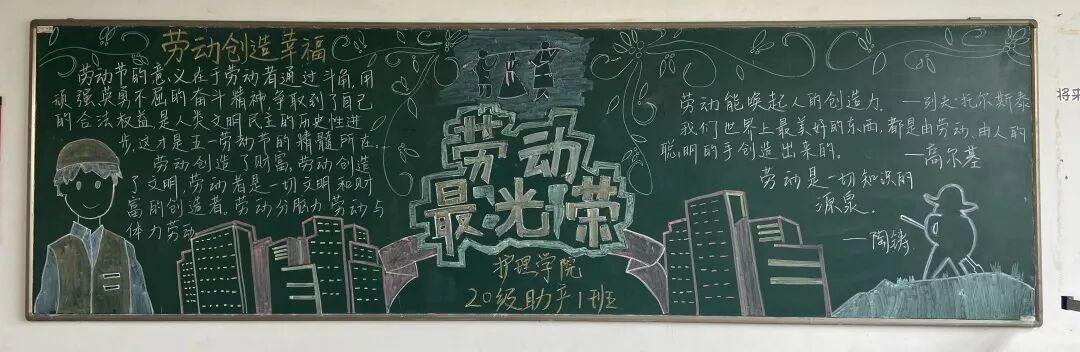 劳动创造幸福
劳动节的意义在于劳动者通过斗角,用
顽强英勇不屈的奋斗精神,争取到了自己
的合法权益,是人类文明民主的历史性进
步,这才是五一劳动节的精髓所在...
劳动创造了财富,劳动创造
了文明,劳动者是一切文明和财
富的创造者.劳动分脑力劳动与
体力劳动
劳动
最光荣
护理学院
20级助产1班
劳动能唤起人的创造力. —列夫·托尔斯泰
我们世界上最美好的东西,都是由劳动、由人的
聪明的手创造出来的。 —高尔基
劳动是一切知识的
源泉.
—陶铸
将来